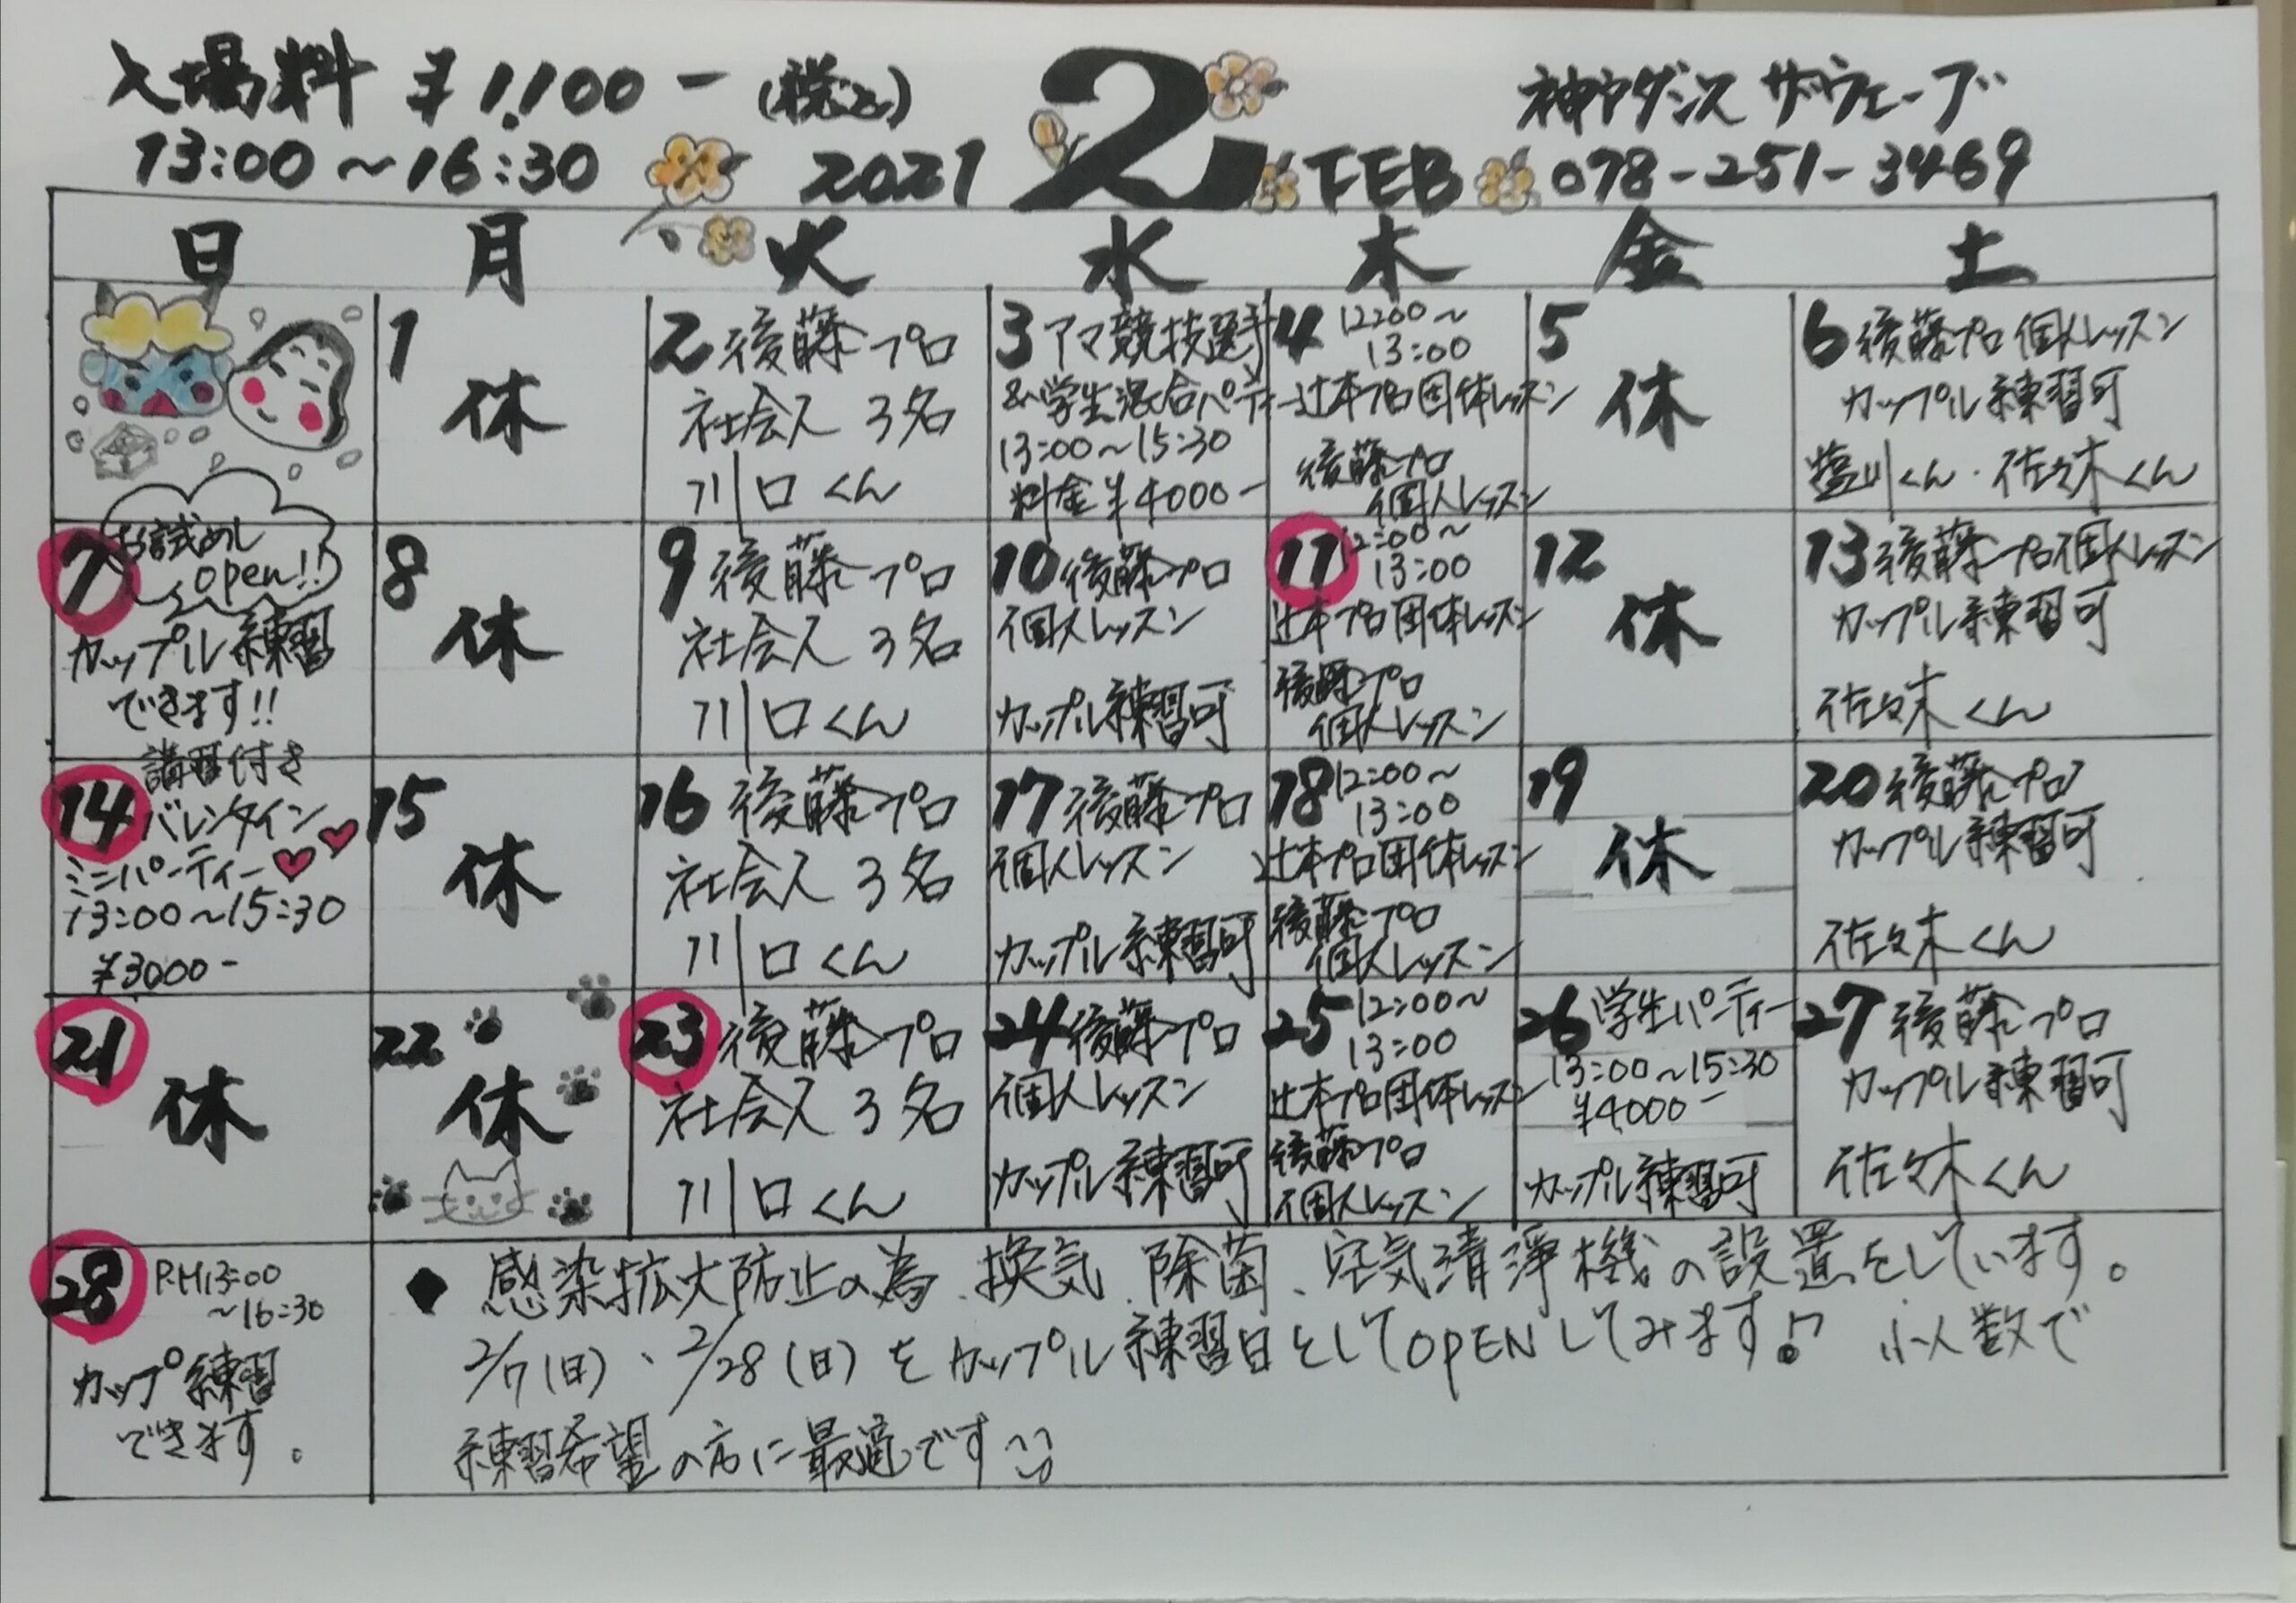 入場料 ¥1,100-(税込)
13:00~16:30
2021 2 FEB
神戸ダンス ザウェーブ
078-251-3469
日 月 火 水 木 金 土
1
休
2 後藤プロ
社会人 3名
川口くん
3 アマ競技選手
&学生混合パーティー
13:00~15:30
料金¥4000-
4 12:00~
13:00
辻本プロ団体レッスン
後藤プロ
個人レッスン
5
休
6 後藤プロ個人レッスン
カップル練習可
塩川くん・佐々木くん
7 お試めし
open!!
カップル練習
できます!!
8
休
9 後藤プロ
社会人 3名
川口くん
10 後藤プロ
個人レッスン
カップル練習可
11 12:00~
13:00
辻本プロ団体レッスン
後藤プロ
個人レッスン
12
休
13 後藤プロ個人レッスン
カップル練習可
佐々木くん
14 講習付き
バレンタイン
ミニパーティー
13:00~15:30
¥3000-
15
休
16 後藤プロ
社会人 3名
川口くん
17 後藤プロ
個人レッスン
カップル練習可
18 12:00~
13:00
辻本プロ団体レッスン
後藤プロ
個人レッスン
19
休
20 後藤プロ
カップル練習可
佐々木くん
21
休
22
休
23 後藤プロ
社会人 3名
川口くん
24 後藤プロ
個人レッスン
カップル練習可
25 12:00~
13:00
辻本プロ団体レッスン
後藤プロ
個人レッスン
26 学生パーティー
13:00~15:30
¥4000-
カップル練習可
27 後藤プロ
カップル練習可
佐々木くん
28 P.M13:00
~16:30
カップ練習
できます。
◆ 感染拡大防止の為、換気、除菌、空気清浄機の設置をしています。
2/7(日)、2/28(日)をカップル練習日としてOPENしてみます♪ 小人数で
練習希望の方に最適です